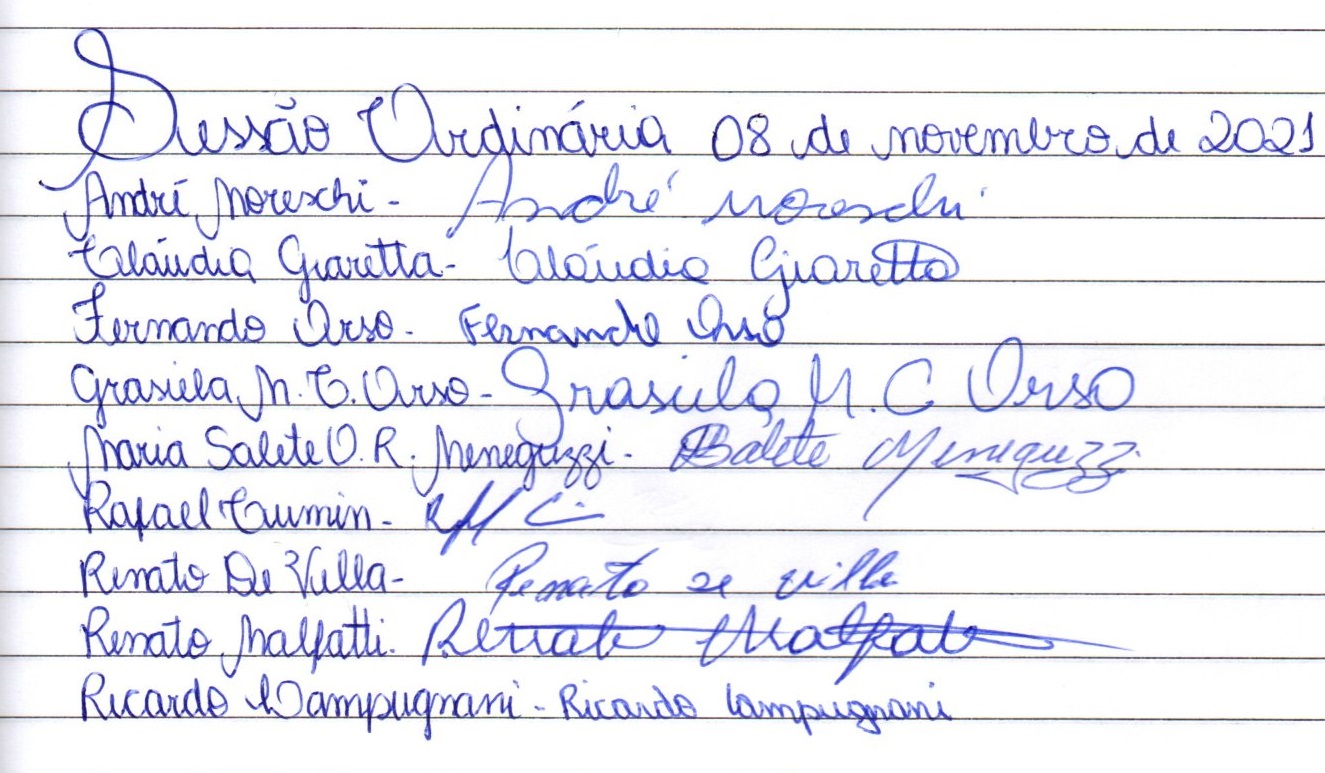 Sessão Ordinária 08 de novembro de 2021
André Moreschi - André Moreschi
Cláudia Giaretta - Cláudia Giaretta
Fernando Orso - Fernando Orso
Grasiela M. C. Orso - Grasiela M. C Orso
Maria Salete O. R. Meneguzzi - Salete Meneguzzi
Rafael Crumin -
Renato De Villa - Renato de villa
Renato Malfatti - Renato Malfatti
Ricardo Campugnani - Ricardo Campugnani